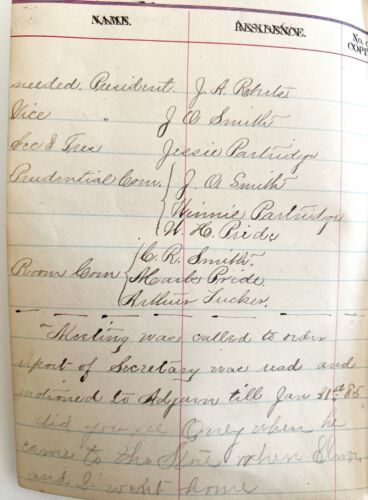 NAME. RESIDENCE. No. COPI
needed. President. J. A. Roberts
Vice " J O Smith
Sec & Tres Jessie Partridge
Prudential Com. J. O. Smith
Winnie Partridge
W. H. Pride
Room Com C. R. Smith.
Mark Pride
Arthur Tucker.
Meeting was called to order
report of Secretary was read and
motioned to Adjurn till Jan 31st 85
did you see Oney when he
came to the Store when Elmer
and I went home